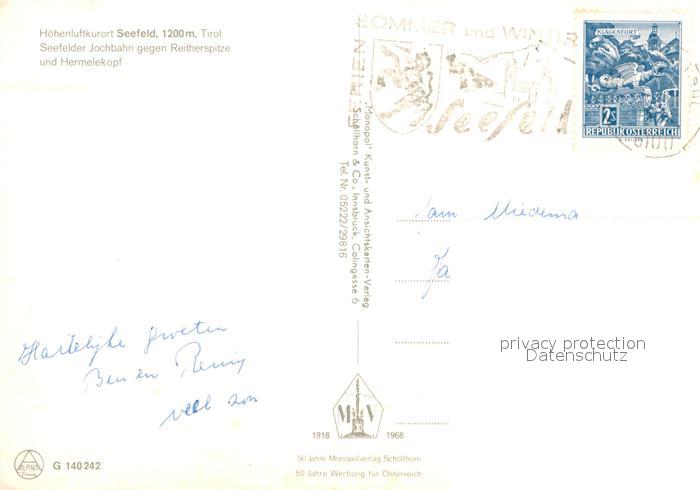 Höhenluftkurort Seefeld, 1200 m, Tirol
Seefelder Jochbahn gegen Reitherspitze
und Hermelekopf
SOMMER und WINTER
FERIEN
Seefeld
KLAGENFURT
2S
REPUBLIK ÖSTERREICH
„Monopol" Kunst- und Ansichtskarten-Verlag
Schöllhorn & Co., Innsbruck, Colingasse 6
Tel. Nr. 05222/29816
fam Miedema
Hartelijke groeten
Ben en
veel zon
privacy protection
Datenschutz
M V
1918 1968
50 Jahre Monopolverlag Schöllhorn
50 Jahre Werbung für Österreich
ALPINA
G 140 242